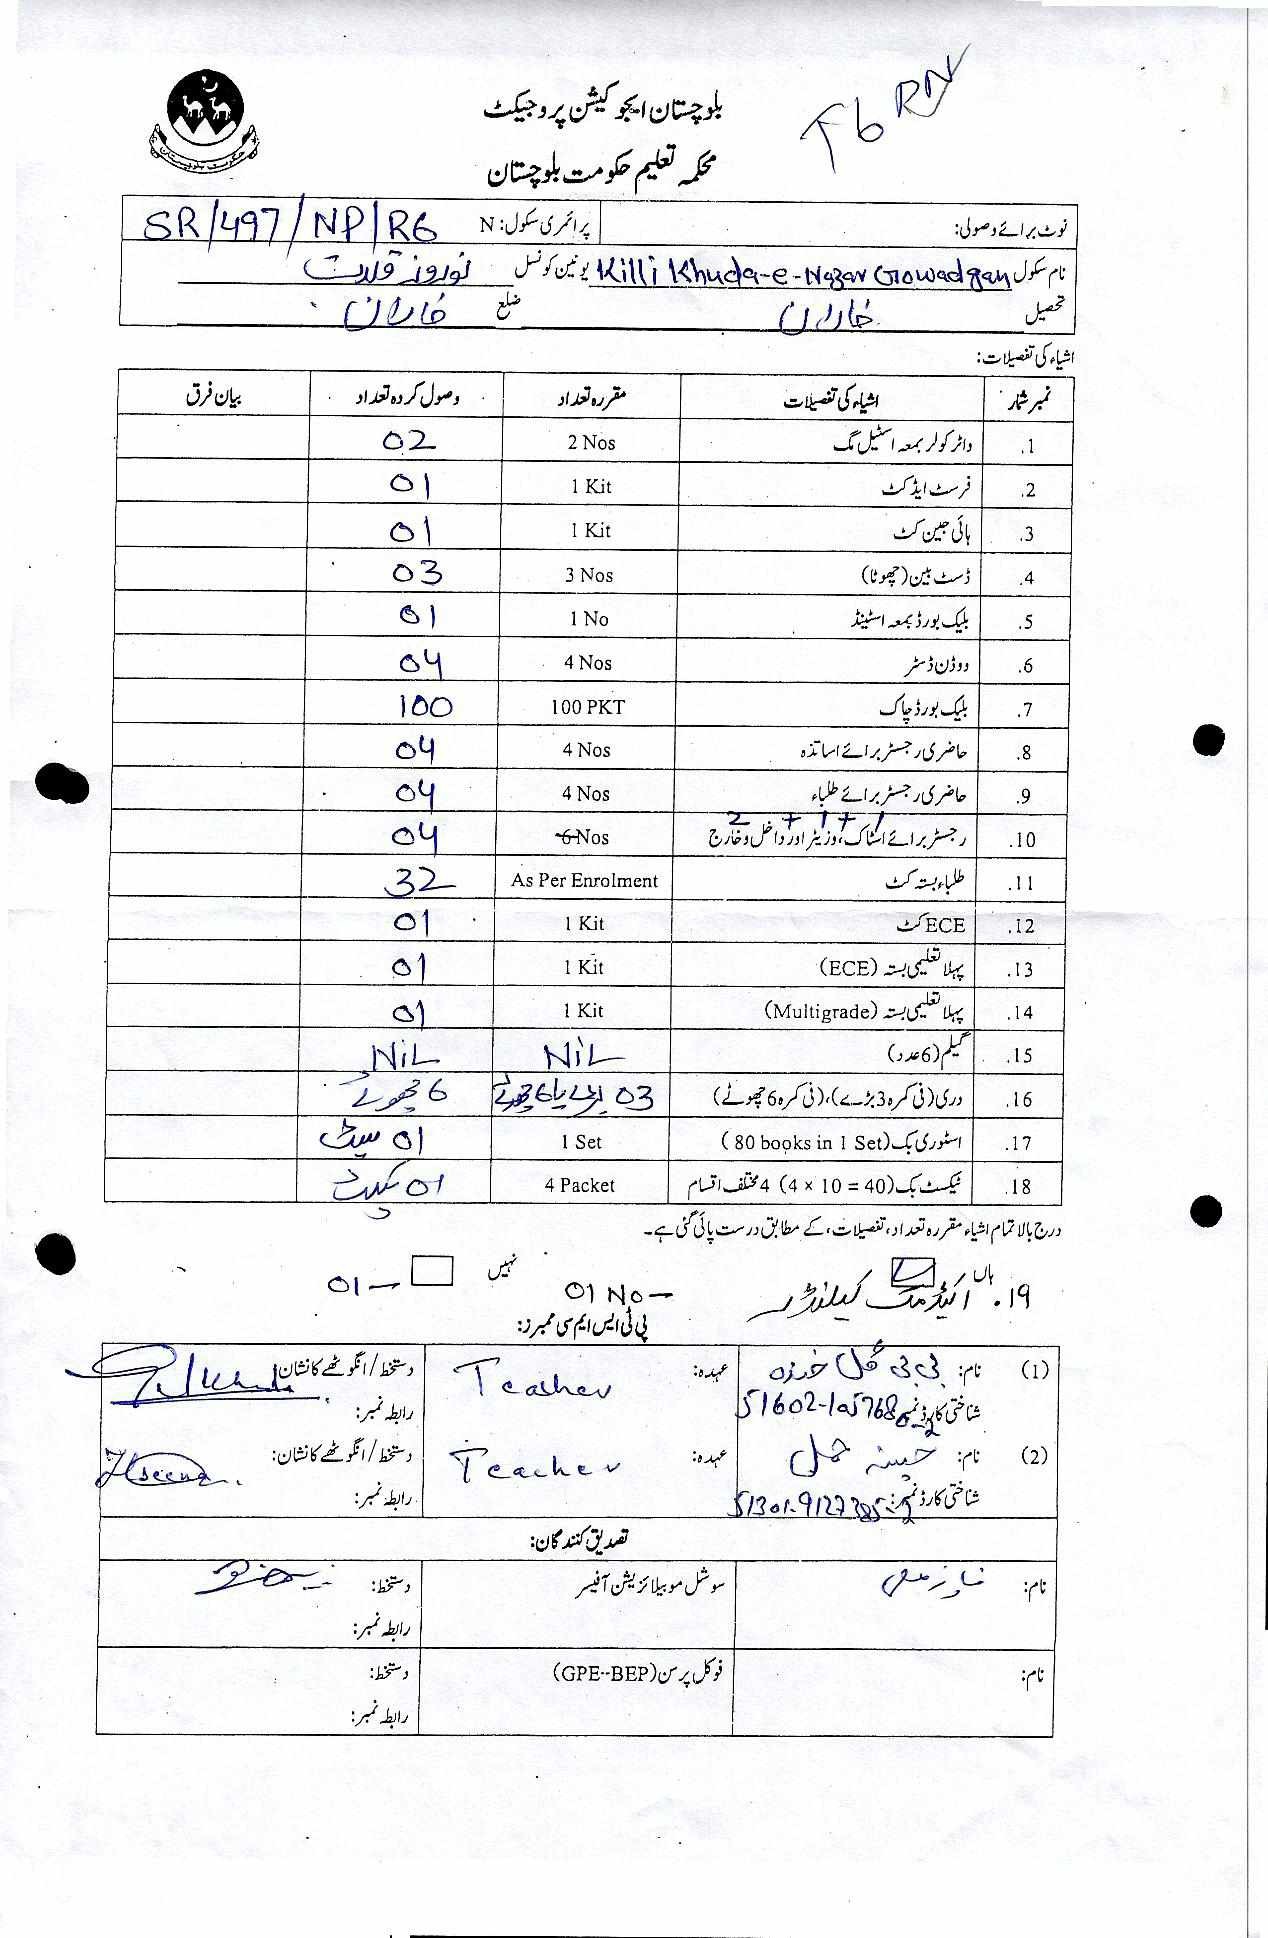 بلوچستان ایجوکیشن پروجیکٹ
محکمہ تعلیم حکومت بلوچستان
حکومت بلوچستان
نوٹ برائے وصولی: پرائمری سکول: N SR/497/NP/R6
نام سکول Killi Khuda-e-Nazar Gowadgan یونین کونسل نوروز قلات
تحصیل خاران ضلع خاران
اشیاء کی تفصیلات:
نمبر شمار اشیاء کی تفصیلات مقررہ تعداد وصول کردہ تعداد بیان فرق
1. واٹر کولر بمعہ اسٹیل مگ 2 Nos 02
2. فرسٹ ایڈ کٹ 1 Kit 01
3. ہائی جین کٹ 1 Kit 01
4. ڈسٹ بین (چھوٹا) 3 Nos 03
5. بلیک بورڈ بمعہ اسٹینڈ 1 No 01
6. ووڈن ڈسٹر 4 Nos 04
7. بلیک بورڈ چاک 100 PKT 100
8. حاضری رجسٹر برائے اساتذہ 4 Nos 04
9. حاضری رجسٹر برائے طلباء 4 Nos 04
2 + 1 + 1
10. رجسٹر برائے اسٹاک، وزیٹر اور داخل و خارج 6 Nos 04
11. طلباء بستہ کٹ As Per Enrolment 32
12. ECE کٹ 1 Kit 01
13. پہلا تعلیمی بستہ (ECE) 1 Kit 01
14. پہلا تعلیمی بستہ (Multigrade) 1 Kit 01
15. گیلم (6 عدد) NiL NiL
16. دری (فی کمرہ 3 بڑے)، (فی کمرہ 6 چھوٹے) 03 بڑے یا 6 چھوٹے 6 چھوٹے
17. اسٹوری بک (80 books in 1 Set) 1 Set 01 سیٹ
18. ٹیکسٹ بک (4 x 10 = 40) 4 مختلف اقسام 4 Packet 01
درج بالا تمام اشیاء مقررہ تعداد، تفصیلات، کے مطابق درست پائی گئی ہے۔
ہاں نہیں
19. اکیڈمک کیلنڈر 01 No – 01 –
پی ٹی ایس ایم سی ممبرز:
(1) نام: بی بی گل عہدہ: Teacher دستخط / انگوٹھے کا نشان:
شناختی کارڈ نمبر: رابطہ نمبر:
(2) نام: عہدہ: Teacher دستخط / انگوٹھے کا نشان: Hseena
شناختی کارڈ نمبر: رابطہ نمبر:
تصدیق کنندگان:
نام: سوشل موبیلائزیشن آفیسر دستخط:
رابطہ نمبر:
نام: فوکل پرسن (GPE--BEP) دستخط:
رابطہ نمبر: